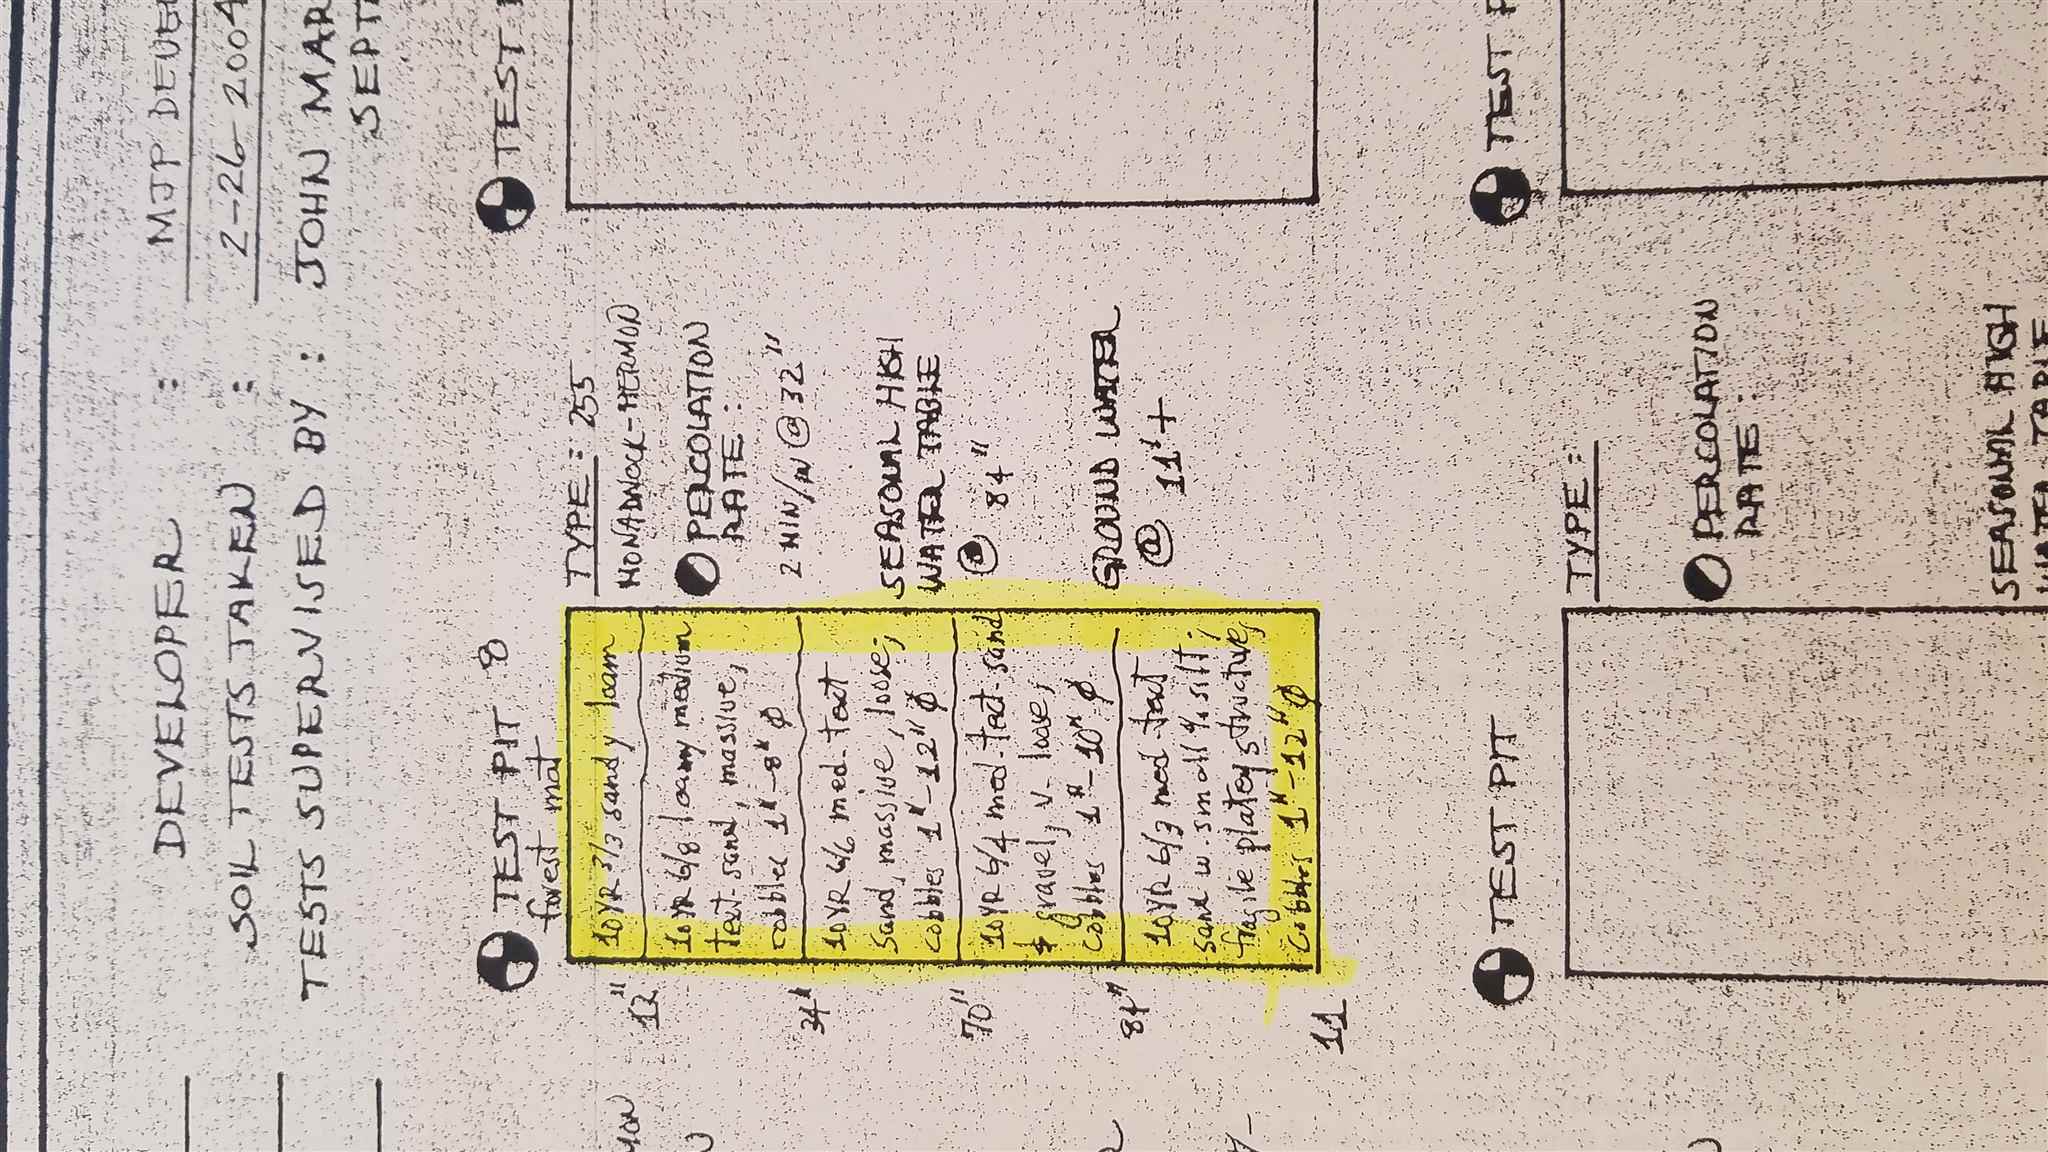 DEVELOPER : MJP DEVE
SOIL TESTS TAKEN : 2-26-2004
TESTS SUPERVISED BY : JOHN MAR
SEPT
TEST PIT 8
forest mat
10YR 3/3 sandy loam
12"
10YR 6/8 loamy medium
text. sand, massive,
cobbles 1"-8" ϕ
34"
10YR 6/6 med. text
sand, massive, loose;
cobbles 1"-12" ϕ
70"
10YR 6/4 med. text. sand
& gravel; v. loose;
cobbles 1"-10" ϕ
84"
10YR 6/3 med text
sand w. small % silt;
fragile platey structure;
cobbles 1"-12" ϕ
11
TYPE: 255
MONADNOCK-HERMON
PERCOLATION
RATE:
2 MIN/IN @ 32"
SEASONAL HIGH
WATER TABLE
@ 84"
GROUND WATER
@ 11'+
TEST
TEST PIT
TYPE:
PERCOLATION
RATE:
SEASONAL HIGH
WATER TABLE
TEST P